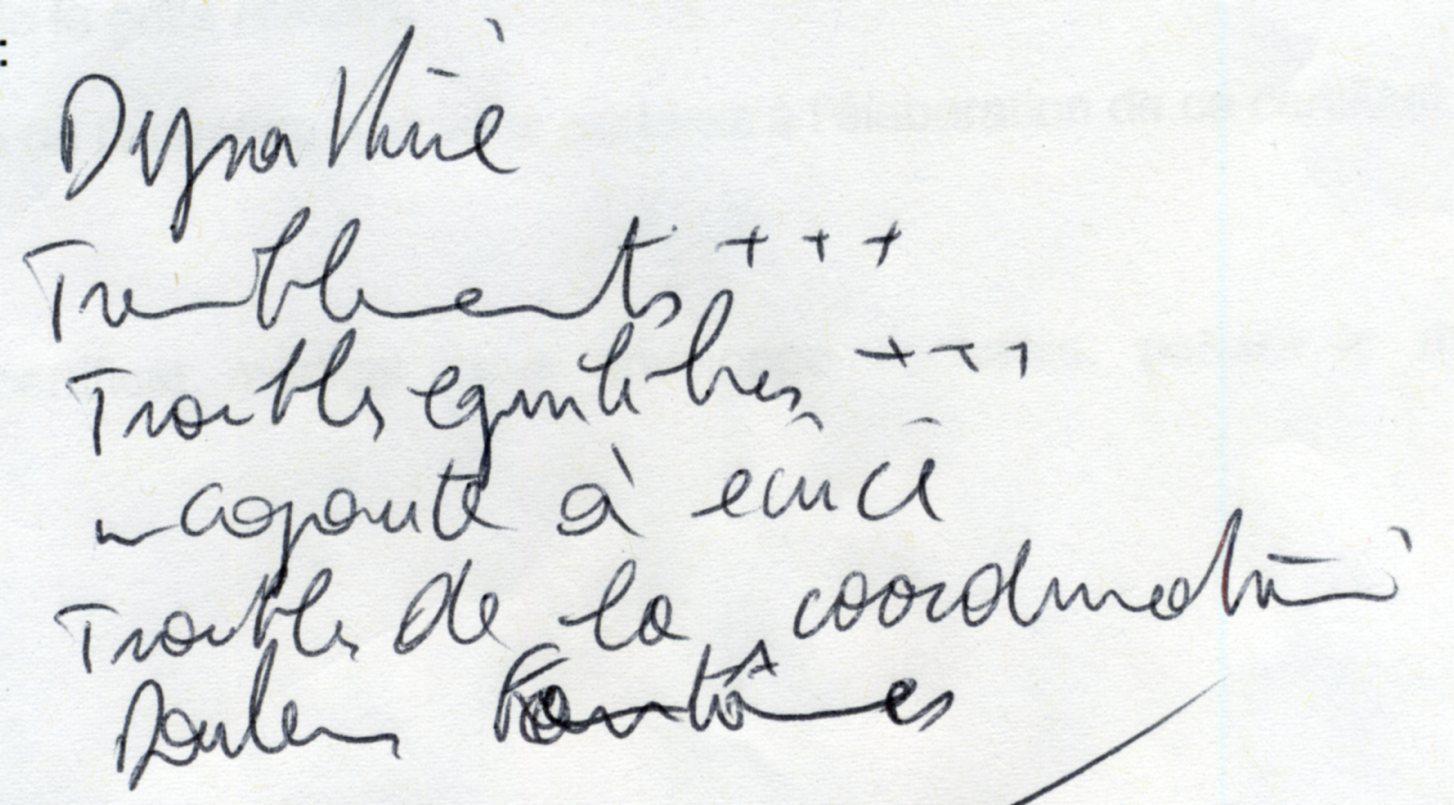 :
Dysarthrie
Tremblements +++
Troubles equilibres +++
incapacité à écrire
Troubles de la coordination
Douleurs Fantômes